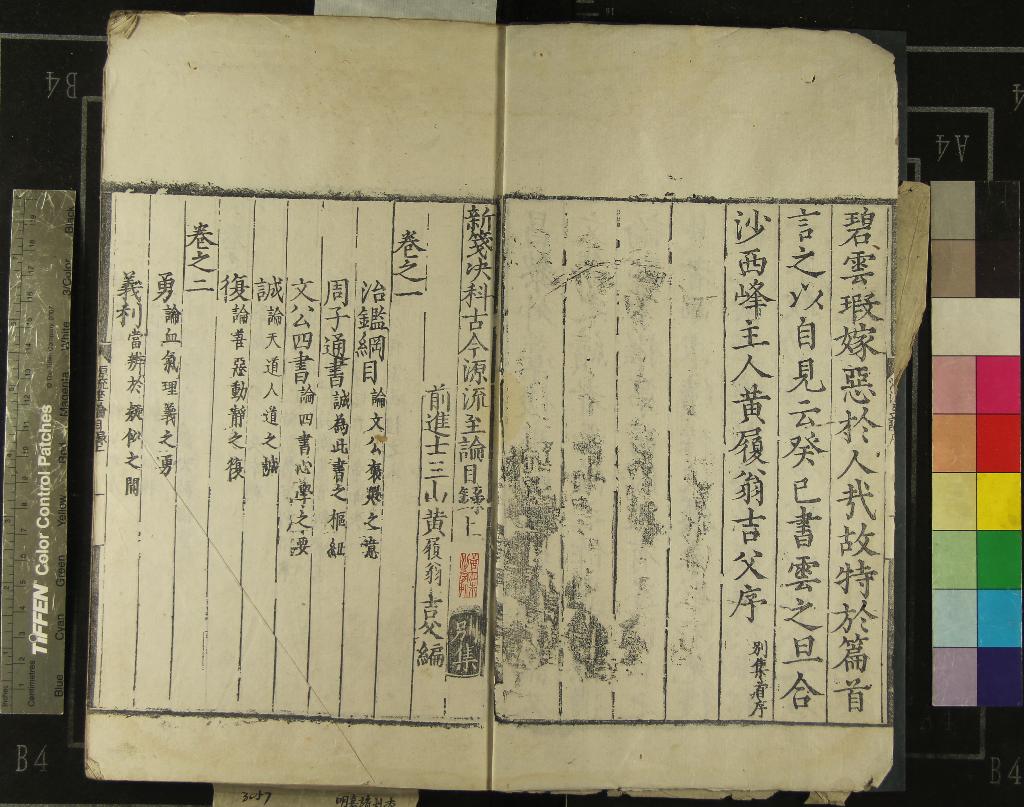 碧雲瑕嫁惡於人㢤故特於篇首
言之以自見云癸巳書雲之旦合
沙西峰主人黄履翁吉父序
別集者序
新箋决科古今源流至論目錄上
別集
前進士三山黄履翁吉父編
卷之一
治鑑綱目論文公褒貶之意
周子通書誠為此書之樞紐
文公四書論四書心學之要
誠論天道人道之誠
復論善惡動靜之復
卷之二
勇論血氣理義之勇
義利當辨於疑似之間
TIFFEN Color Control Patches
Blue
Cyan
Green
Yellow
Red
Magenta
White
3/Color
Black
Centimetres
Inches
B4
A4
B4
B4
3057